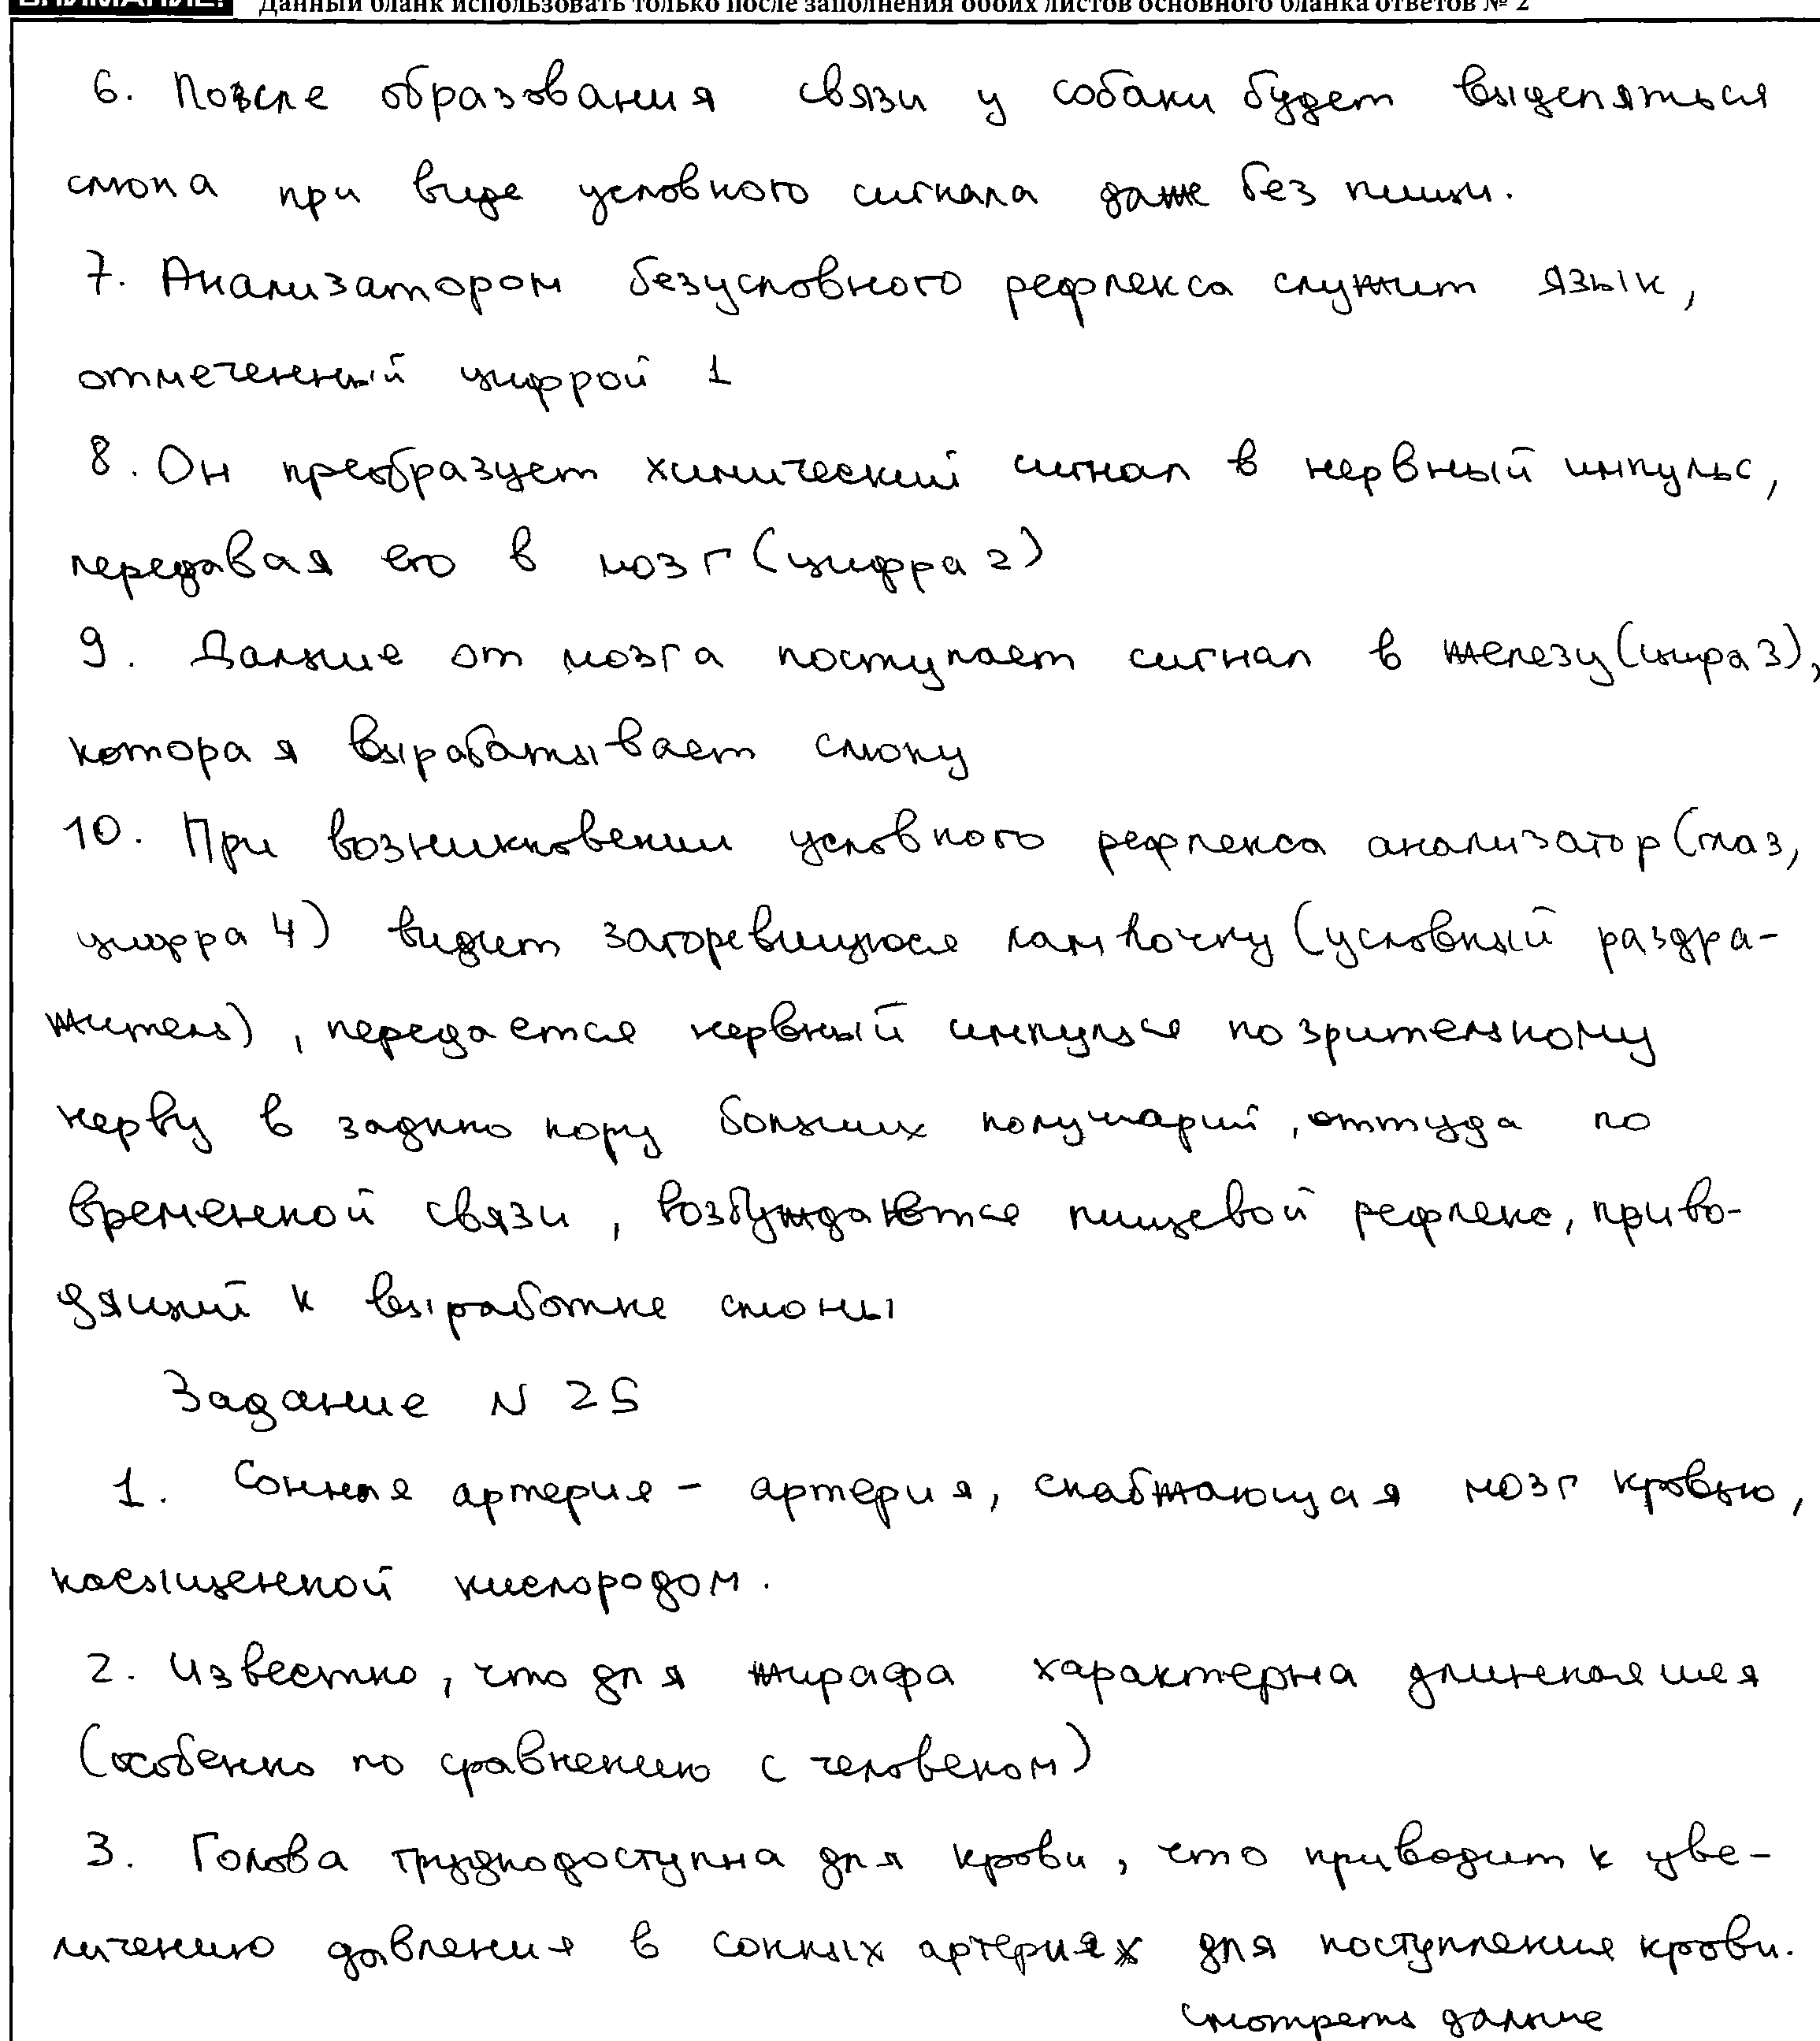 ВНИМАНИЕ! Данный бланк использовать только после заполнения обоих листов основного бланка ответов № 2
6. После образования связи у собаки будет выделяться
слюна при виде условного сигнала даже без пищи.
7. Анализатором безусловного рефлекса служит язык,
отмеченный цифрой 1
8. Он преобразует химический сигнал в нервный импульс,
передавая его в мозг (цифра 2)
9. Дальше от мозга поступает сигнал в железу (цира 3),
которая вырабатывает слюну
10. При возникновении условного рефлекса анализатор (глаз,
цифра 4) видит загоревшуюся лампочку (условный раздра-
житель), передается нервный импульс по зрительному
нерву в заднюю кору больших полушарий, оттуда по
временной связи, возбуждаются пищевой рефлекс, приво-
дящий к выработке слюны
Задание N 25
1. Сонная артерия - артерия, снабжающая мозг кровью,
насыщенной кислородом.
2. Известно, что для жирафа характерна длинная шея
(особенно по сравнению с человеком)
3. Голова труднодоступна для крови, что приводит к уве-
личению давления в сонных артериях для поступления крови.
смотреть дальше